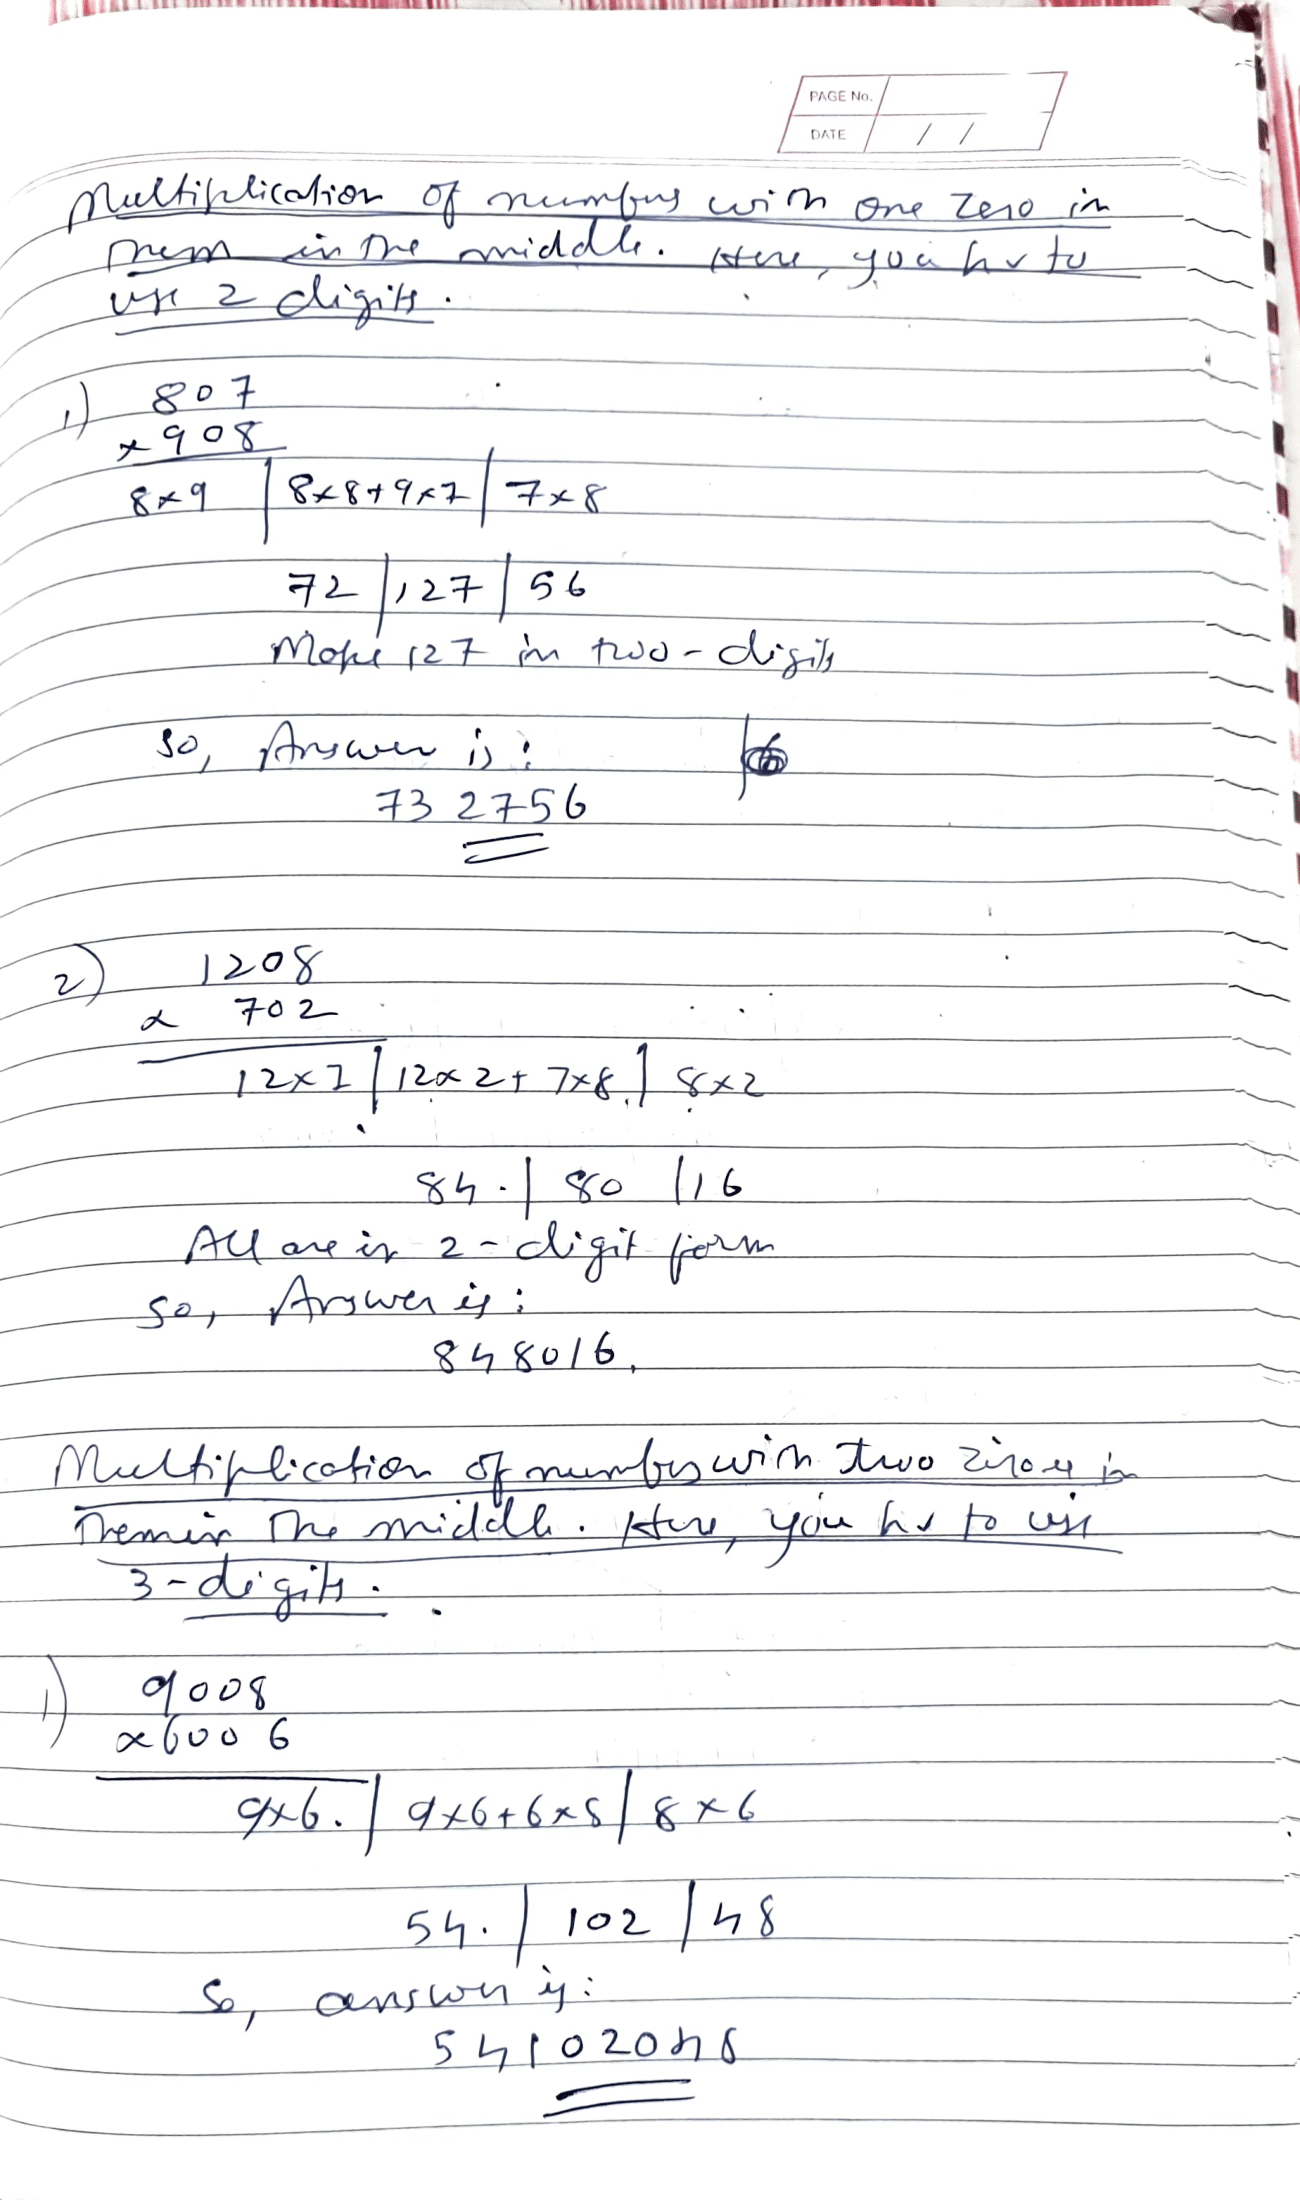 PAGE No.
DATE / /
Multiplication of numbers with one zero in
them in the middle. Here, you hv to
use 2 digits.
1) 807
x 908
8x9 | 8x8+9x7 | 7x8
72 | 127 | 56
Make 127 in two-digits
So, Answer is:
732756
2) 1208
x 702
12x7 | 12x2+7x8 | 8x2
84. | 80 | 16
All are in 2-digit form
So, Answer is:
848016.
Multiplication of numbers with two zeroes in
them in the middle. Here, you hv to use
3-digits.
1) 9008
x6006
9x6. | 9x6+6x8 | 8x6
54. | 102 | 48
So, answer is:
54102048